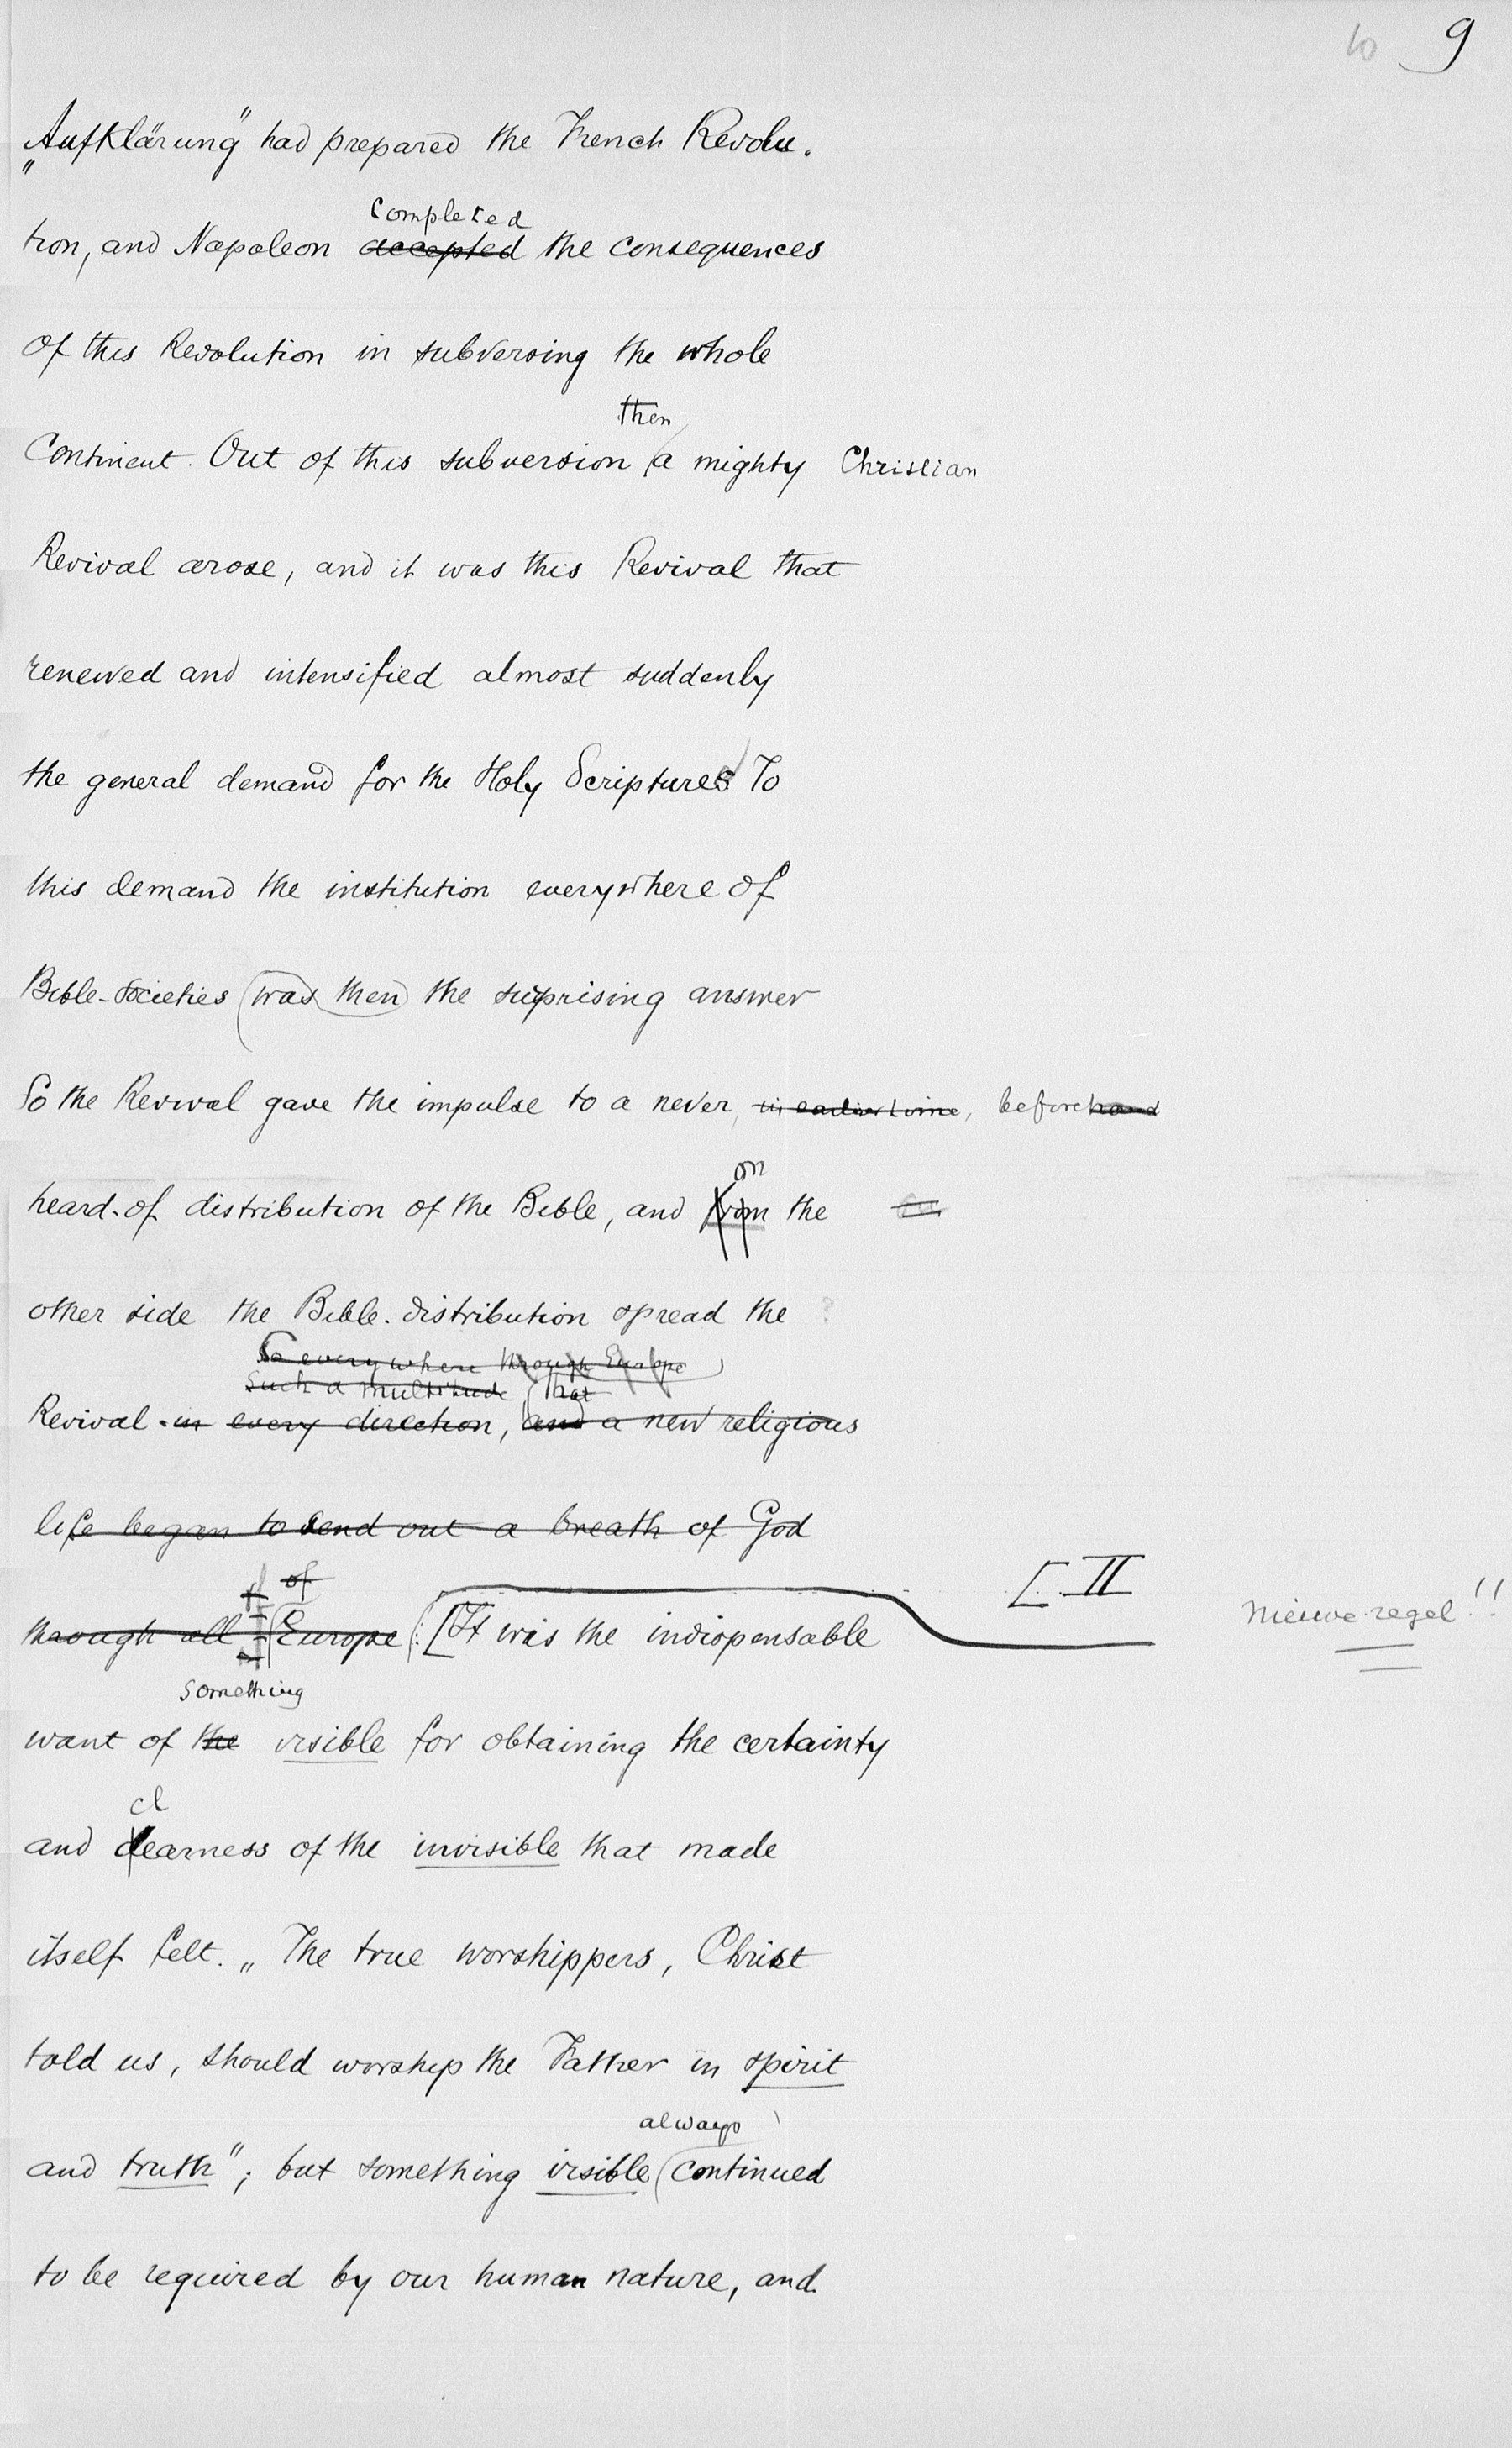 10 9
„Aufklärung" had prepared the French Revolu-
completed
tion, and Napoleon accepted the consequences
of this Revolution in subversing the whole
then
Continent. Out of this subversion a mighty Christian
Revival arose, and it was this Revival that
renewed and intensified almost suddenly
the general demand for the Holy Scriptures To
this demand the institution everywhere of
Bible-Societies was then the surprising answer
So the Revival gave the impulse to a never, in earlier time, beforehand
on
heard-of distribution of the Bible, and from the
other side the Bible-distribution spread the ?
So everywhere through Europe
such a multitude that
Revival in every direction, and a new religious
life began to send out a breath of God
of
through all Europe [It was the indispensable [II nieuwe regel!!
something
want of the visible for obtaining the certainty
cl
and clearness of the invisible that made
itself felt. „The true worshippers, Christ
told us, should worship the Father in spirit
always
and truth"; but something visible continued
to be required by our human nature, and